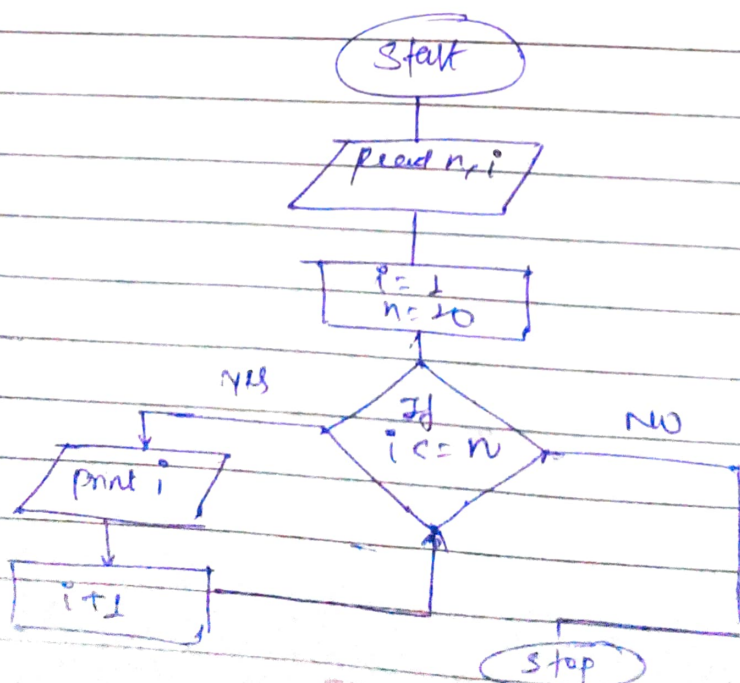 Start
Read n, i
i = 1
n = 20
If
i <= n
Yes
NO
print i
i + 1
Stop